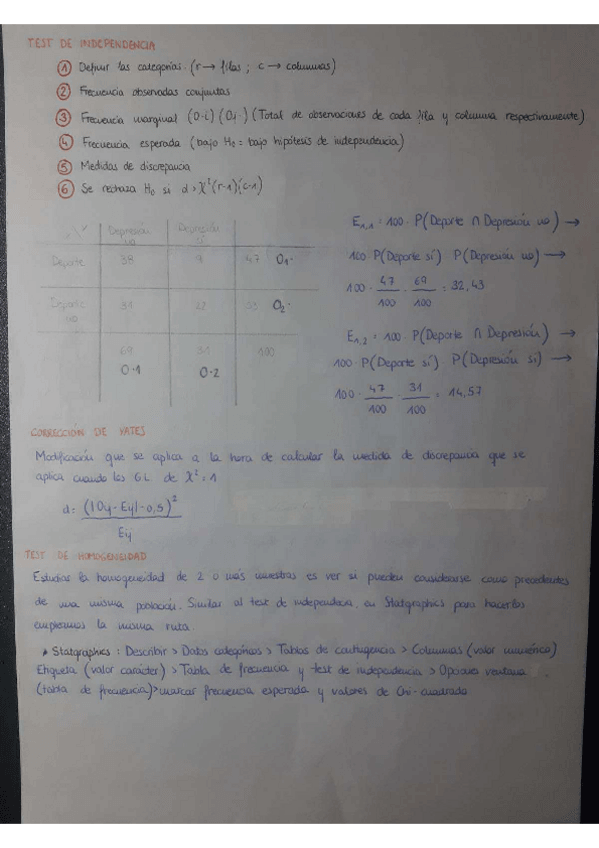 TEST DE INDEPENDENCIA
① Definir las categorías. (r → filas ; c → columnas)
② Frecuencia observadas conjuntas
③ Frecuencia marginal (O·i) (Oj·) (Total de observaciones de cada fila y columna respectivamente)
④ Frecuencia esperada (bajo H₀ = bajo hipótesis de independencia)
⑤ Medidas de discrepancia
⑥ Se rechaza H₀ si d > χ² (r-1)(c-1)
Depresión no Depresión sí
Deporte 38 9 47 O₁·
Deporte no 31 22 53 O₂·
69 31 100
O·1 O·2
E₁,₁ = 100 · P(Deporte ∩ Depresión no) →
100 · P(Deporte sí) · P(Depresión no) →
100 · 47/100 · 69/100 = 32,43
E₁,₂ = 100 · P(Deporte ∩ Depresión) →
100 · P(Deporte sí) P(Depresión sí) →
100 · 47/100 · 31/100 = 14,57
CORRECCIÓN DE YATES
Modificación que se aplica a la hora de calcular la medida de discrepancia que se
aplica cuando los GL de χ² = 1
d = (|Oij - Eij| - 0,5)² / Eij
TEST DE HOMOGENEIDAD
Estudiar la homogeneidad de 2 o más muestras es ver si pueden considerarse como procedentes
de una misma población. Similar al test de independencia, en Statgraphics para hacerlos
empleamos la misma ruta.
Statgraphics : Describir > Datos categóricos > Tablas de contingencia > Columnas (valor numérico)
Etiqueta (valor carácter) > Tabla de frecuencia y test de independencia > Opciones ventana
(tabla de frecuencia) > marcar frecuencia esperada y valores de Chi-cuadrado